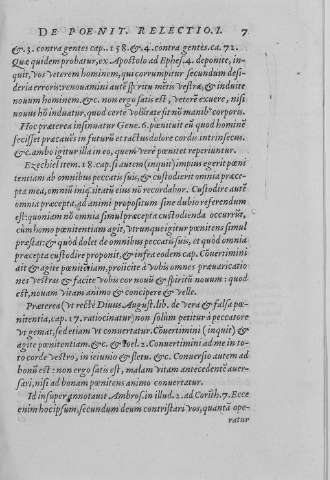 DE POENIT. RELECTIO. I. 7
&.3. contra gentes cap..158.&.4. contra gentes. ca.72.
Quę quidem probatur, ex Apostolo ad Ephes.4. deponite, in-
quit, vos veterem hominem, qui corrumpitur secundum desi-
deria erroris: renouamini autē spiritu mētis vestræ, & induite
nouum hominem. &c. non ergo satis est, veterē exuere, nisi
nouus hō induatur, quod certè volūtate fit nō manibus corporis.
Hoc præterea insinuatur Gene.6. pœnituit eū quod hominē
fecisset præcauēs in futurū et tactus dolore cordis intrinsecus
&c. ambo igitur illa in eo, quem verè pœnitet reperiuntur.
Ezechiel item.18. cap. si autem (inquit) impius egerit pœni
tentiam ab omnibus peccatis suis, & custodierit omnia præce-
pta mea, omniū iniq.itatū eius nō recordabor. Custodire autē
omnia præcepta, ad animi propositum sine dubio referendum
est: quoniam nō omnia simul præcepta custodienda occurrūt,
cùm homo pœnitentiam agit, vtrunque igitur pœnitens simul
prestat: & quòd dolet de omnibus peccatis suis, et quòd omnia
præcepta custodire proponit, & infra eodem cap. Cōuertimini
ait & agite pœnitētiam, proiicite à vobis omnes præuaricatio-
nes vestras & facite vobis cor nouū & spiritū nouum: quod
est, nouam vitam animo & concipere & velle.
Præterea (vt rectè Diuus August. lib. de vera & falsa pœ-
nitentia, cap. 17. ratiocinatur) non solùm petitur à peccatore
vt gemat, sed etiam vt conuertatur. Cōuertimini (inquit) &
agite pœnitentiam. &c. & Ioel.2. Conuertimini ad me in to-
to corde vestro, in ieiunio & fletu. &c. Conuersio autem ad
bonū est: non ergo satis est, malam vitam antecedētē auer-
sari, nisi ad bonam pœnitens animo conuertatur.
Id insuper annotauit Ambros. in illud.2. ad Corīth.7. Ecce
enim hoc ipsum, secundum deum contristari vos, quantā ope-
ratur